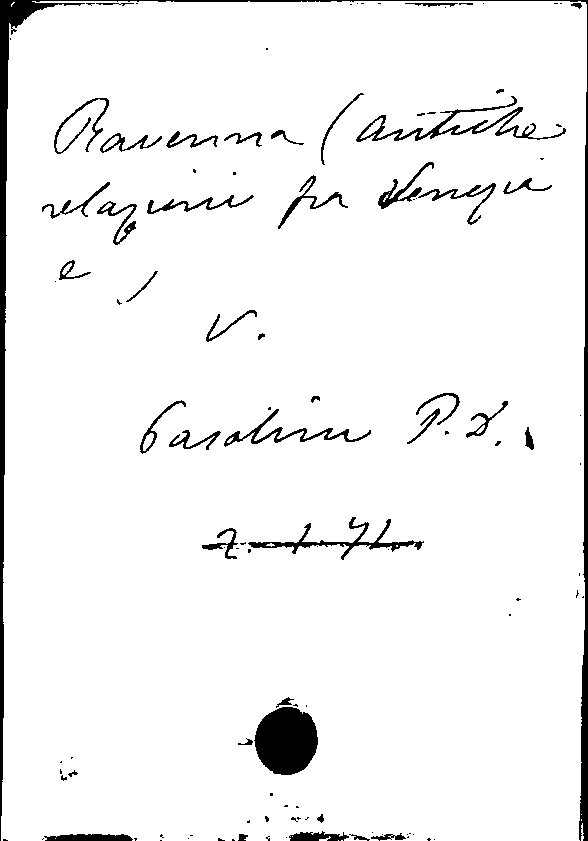 Ravenna (Antiche
relazioni fra Venezia
e )
V.
Pasolini P.D.
Z. 1. 71.